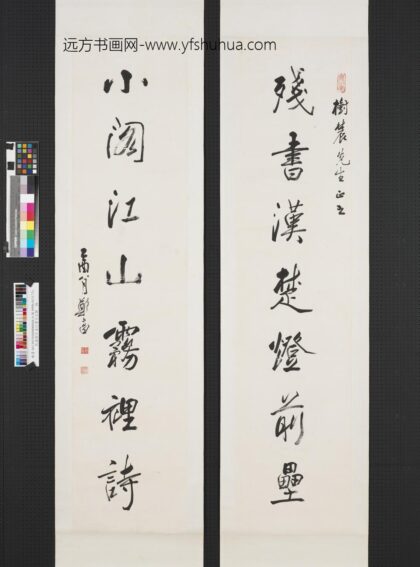 远方书画网-www.yfshuhua.com
樹農先生正之
殘書漢楚燈前壘
小閣江山霧裡詩